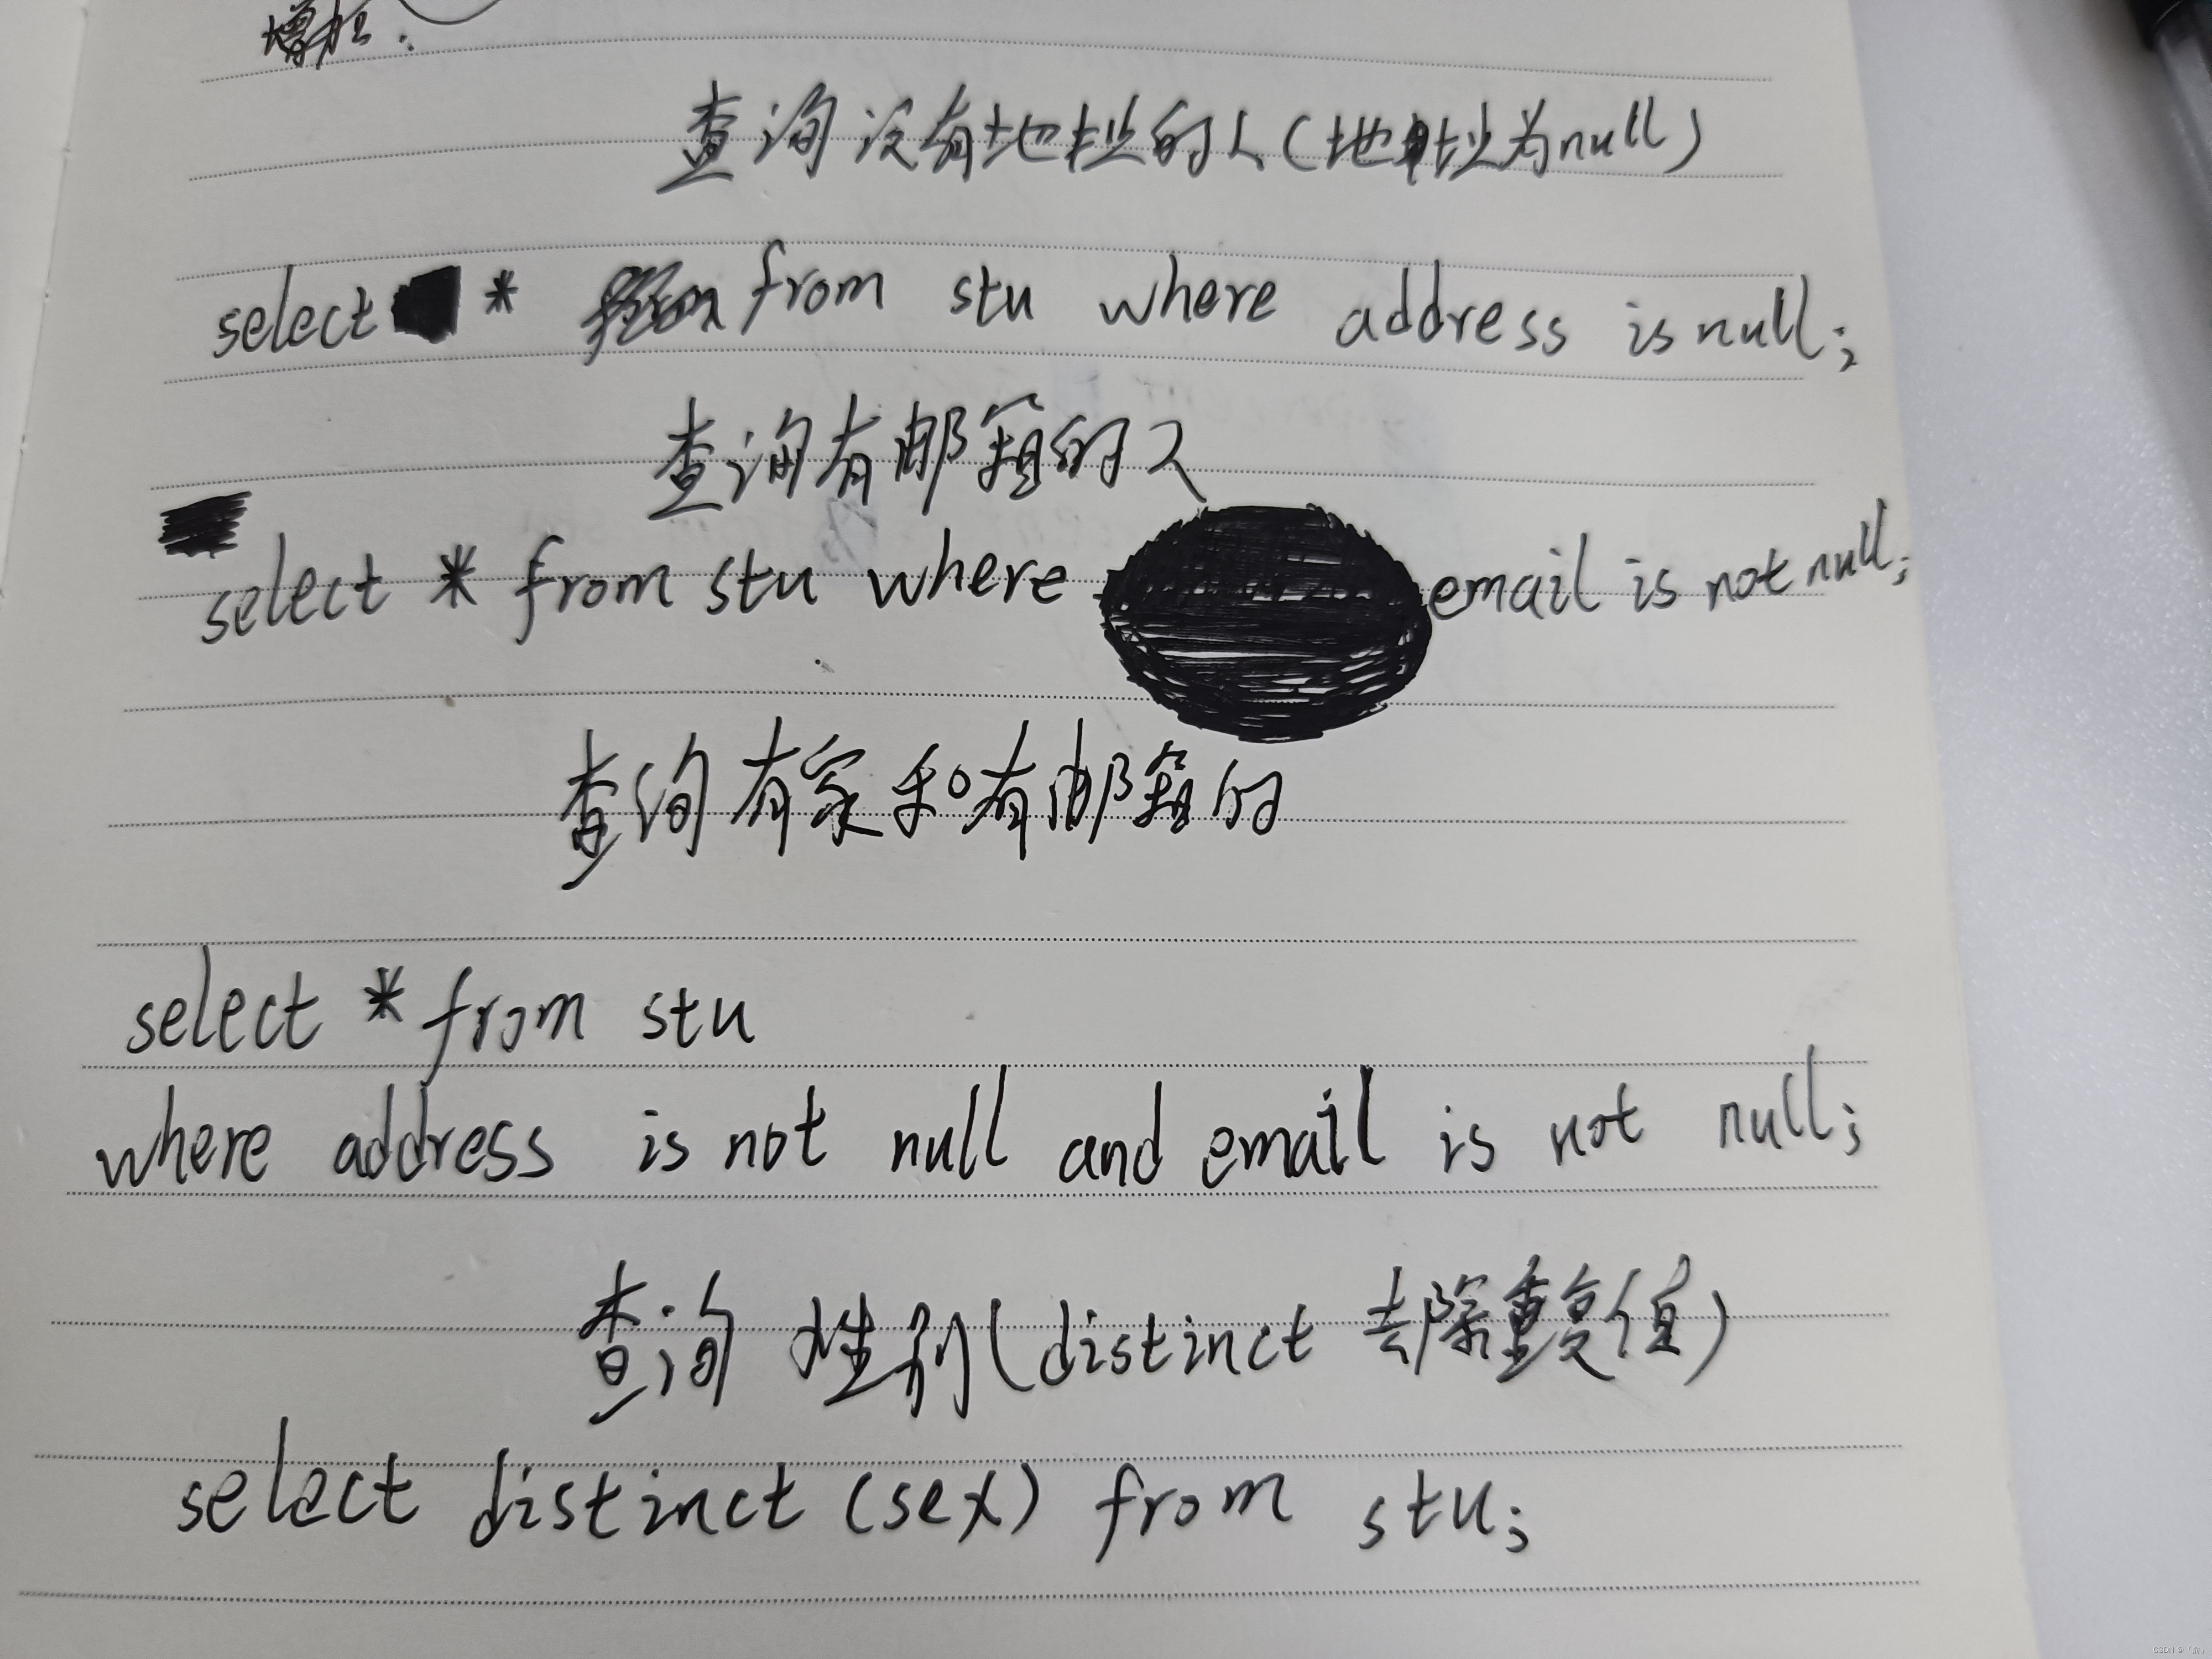 查询没有地址的人(地址为null)
select * from stu where address is null;
查询有邮箱的人
select * from stu where email is not null;
查询有家和有邮箱的
select * from stu
where address is not null and email is not null;
查询 性别(distinct 去除重复值)
select distinct (sex) from stu;